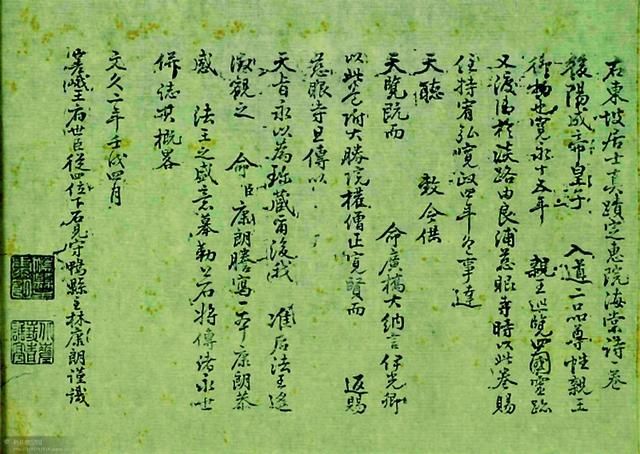 右東坡居士真蹟定惠院海棠詩卷
後陽成帝皇子 入道二品尊性親王
御物也寛永十五年 親王巡覽四國靈跡
又渡海於淡路由良浦慈眼寺時以此卷賜
住持宥弘寛政四年 事達
天聽 敕令供
天覽既而 命廣橋大納言伊光卿
以此卷附大勝院權僧正寛賢而 返賜
慈眼寺且傳以
天旨永以為珍藏爾後我 准后法王遙
觀之 命臣康朗謄寫一本康朗恭
感 法王之盛意摹勒 石將傳諸永世
併志其概略
文久二年壬戌四月
嵯峨王府世臣從四位下石見守鴨縣主林康朗謹識